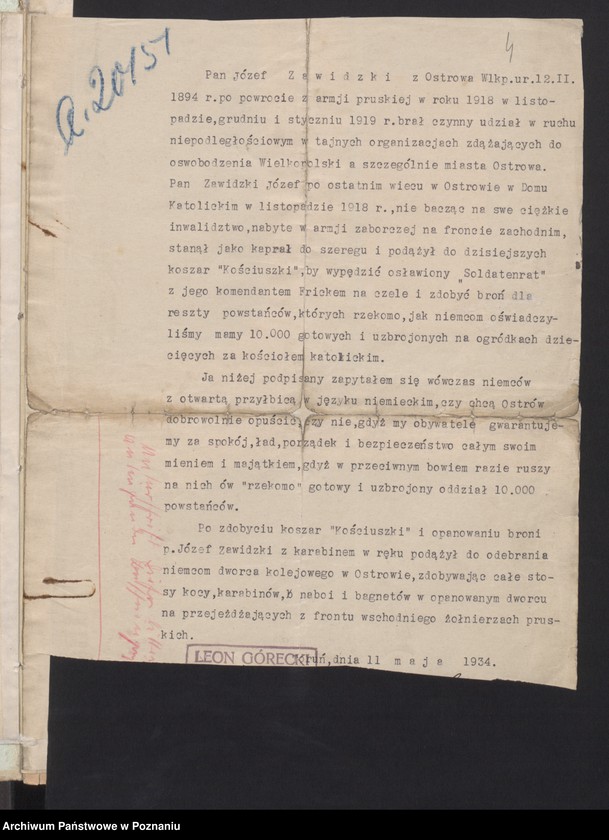 4
a. 20151
Pan Józef Z a w i d z k i z Ostrowa Wlkp.ur.12.II.
1894 r.po powrocie z armji pruskiej w roku 1918 w listo-
padzie,grudniu i styczniu 1919 r.brał czynny udział w ruchu
niepodległościowym w tajnych organizacjach zdążających do
oswobodzenia Wielkopolski a szczególnie miasta Ostrowa.
Pan Zawidzki Józef po ostatnim wiecu w Ostrowie w Domu
Katolickim w listopadzie 1918 r.,nie bacząc na swe ciężkie
inwalidztwo,nabyte w armji zaborczej na froncie zachodnim,
stanął jako kapral do szeregu i podążył do dzisiejszych
koszar "Kościuszki",by wypędzić osławiony „Soldatenrat"
z jego komendantem Frickem na czele i zdobyć broń dla
reszty powstańców,których rzekomo,jak niemcom oświadczy-
liśmy mamy 10.000 gotowych i uzbrojonych na ogródkach dzie-
cięcych za kościołem katolickim.
Ja niżej podpisany zapytałem się wówczas niemców
z otwartą przyłbicą w języku niemieckim,czy chcą Ostrów
dobrowolnie opuścić czy nie,gdyż my obywatele gwarantuje-
my za spokój,ład,porządek i bezpieczeństwo całym swoim
mieniem i majątkiem,gdyż w przeciwnym bowiem razie ruszy
na nich ów "rzekomo" gotowy i uzbrojony oddział 10.000
powstańców.
Po zdobyciu koszar "Kościuszki" i opanowaniu broni
p.Józef Zawidzki z karabinem w ręku podążył do odebrania
niemcom dworca kolejowego w Ostrowie,zdobywając całe sto-
sy kocy,karabinów, naboi i bagnetów w opanowanym dworcu
na przejeżdżających z frontu wschodniego żołnierzach prus-
kich.
LEON GÓRECKI
Toruń,dnia 11 m a j a 1934.
Archiwum Państwowe w Poznaniu